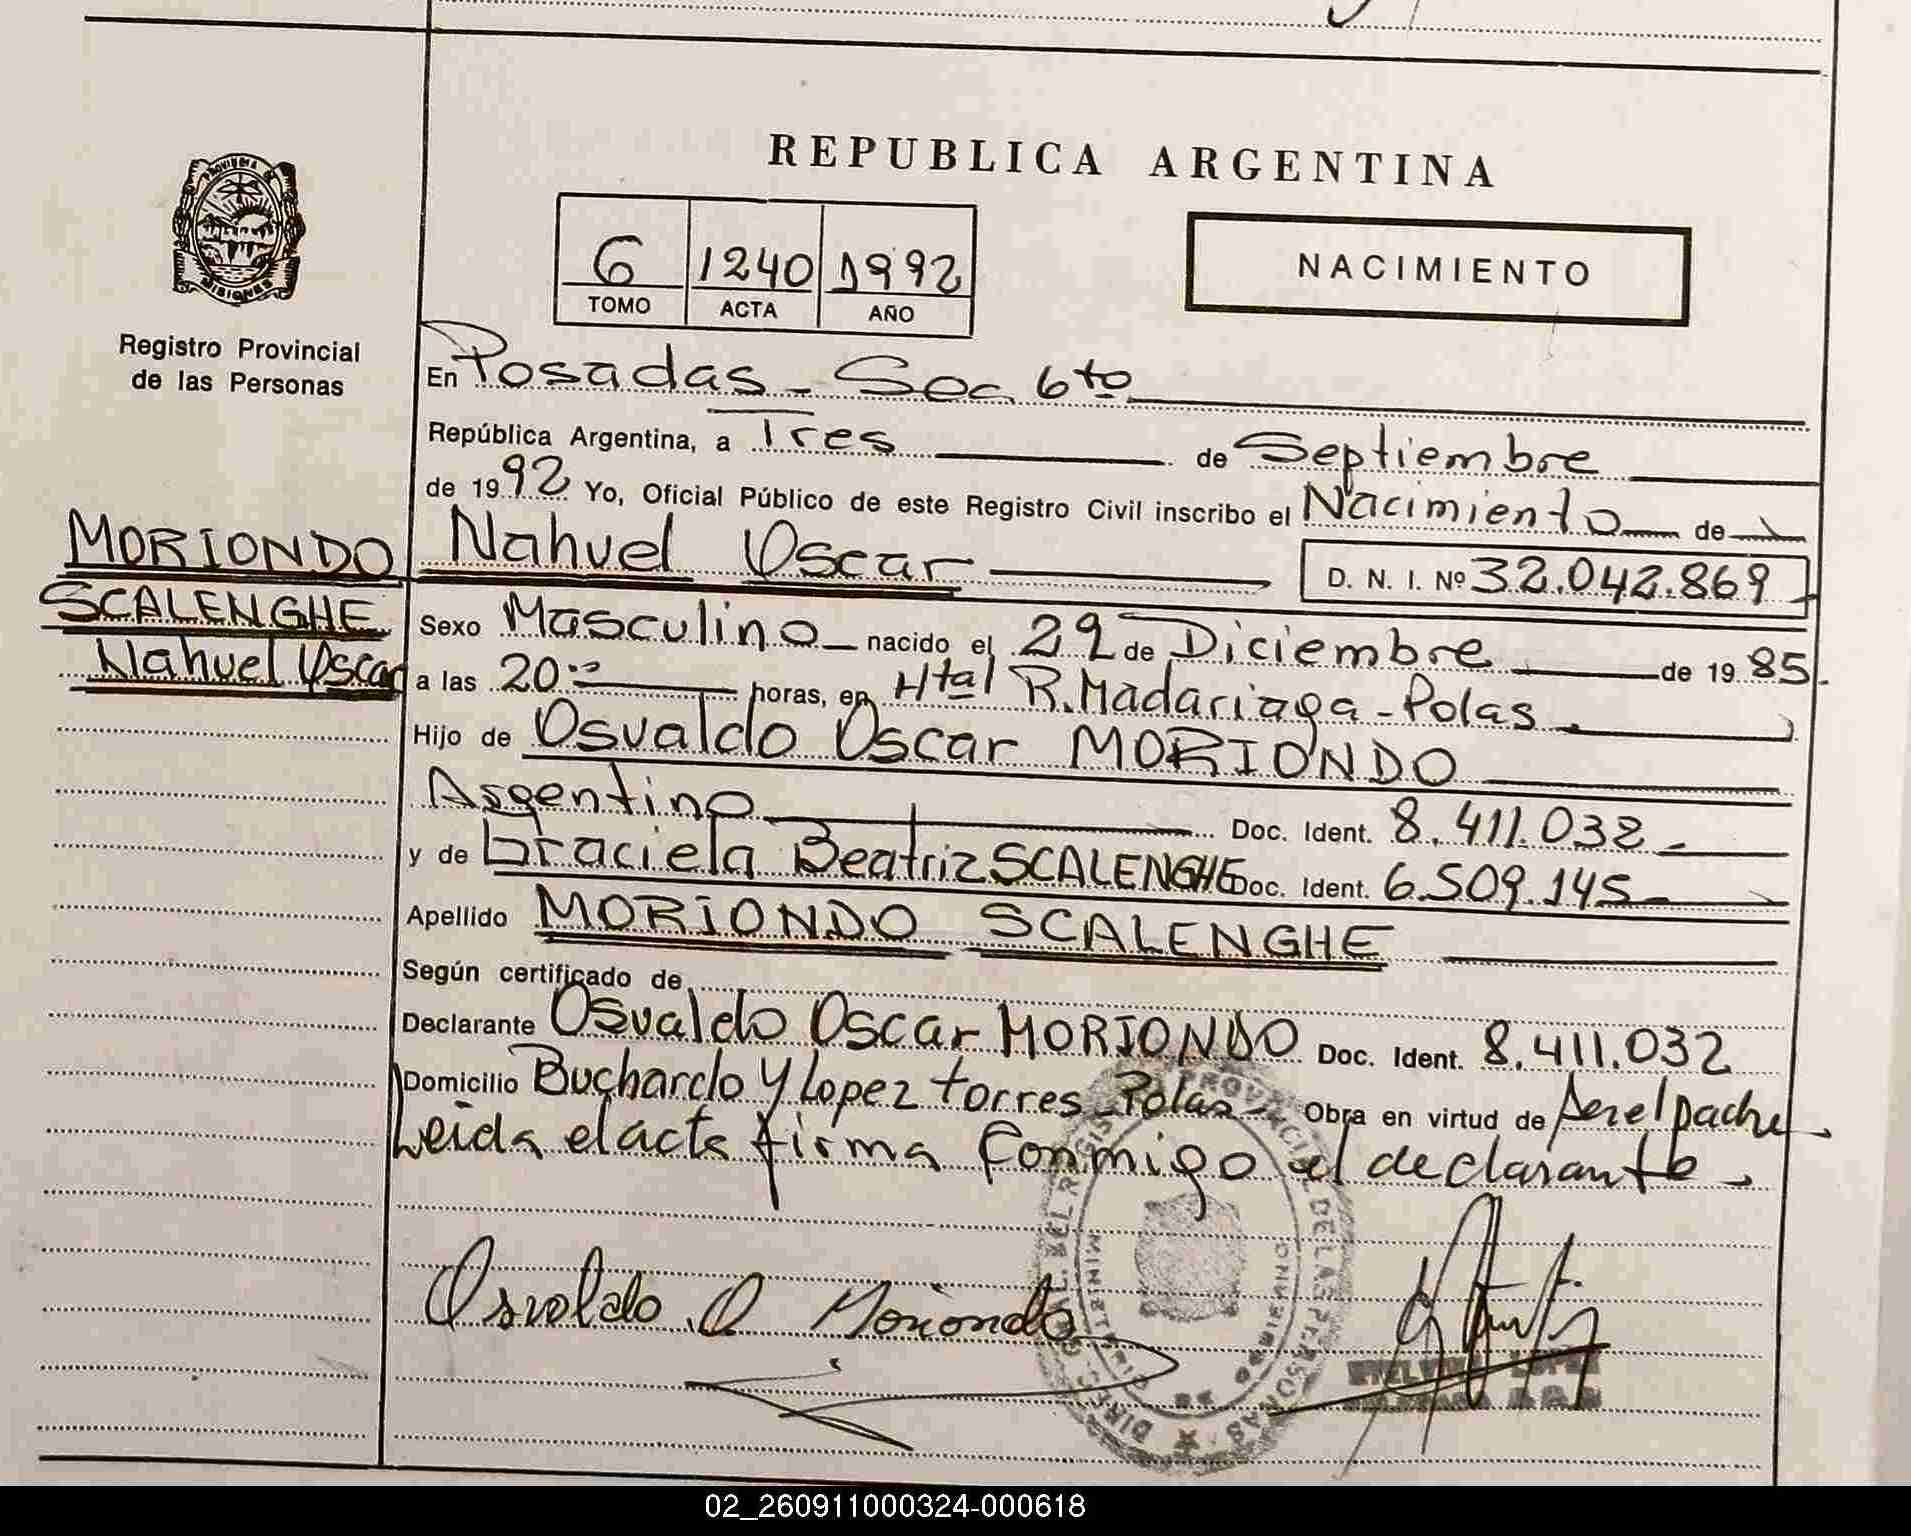 REPUBLICA ARGENTINA
PROVINCIA DE
MISIONES
Registro Provincial
de las Personas
6 1240 1992
TOMO ACTA AÑO
NACIMIENTO
En Posadas - Sec 6to
República Argentina, a Tres de Septiembre
de 1992 Yo, Oficial Público de este Registro Civil inscribo el Nacimiento de
MORIONDO
SCALENGHE
Nahuel Oscar
Nahuel Oscar D. N. I. Nº 32.042.869
Sexo Masculino nacido el 29 de Diciembre de 1985.
a las 20:00 horas, en Htal R. Madariaga - Pdas
Hijo de Osvaldo Oscar MORIONDO
Argentino Doc. Ident. 8.411.032
y de Graciela Beatriz SCALENGHE Doc. Ident. 6.509.145
Apellido MORIONDO SCALENGHE
Según certificado de
Declarante Osvaldo Oscar MORIONDO Doc. Ident. 8.411.032
Domicilio Buchardo y Lopez torres - Pdas - Obra en virtud de ser el padre
Leida el acta firma Conmigo el declarante
Osvaldo O Moriondo
DIREC. GRAL. DEL REGISTRO PROVINCIAL DE LAS PERSONAS
MINISTERIO DE GOBIERNO
02_260911000324-000618